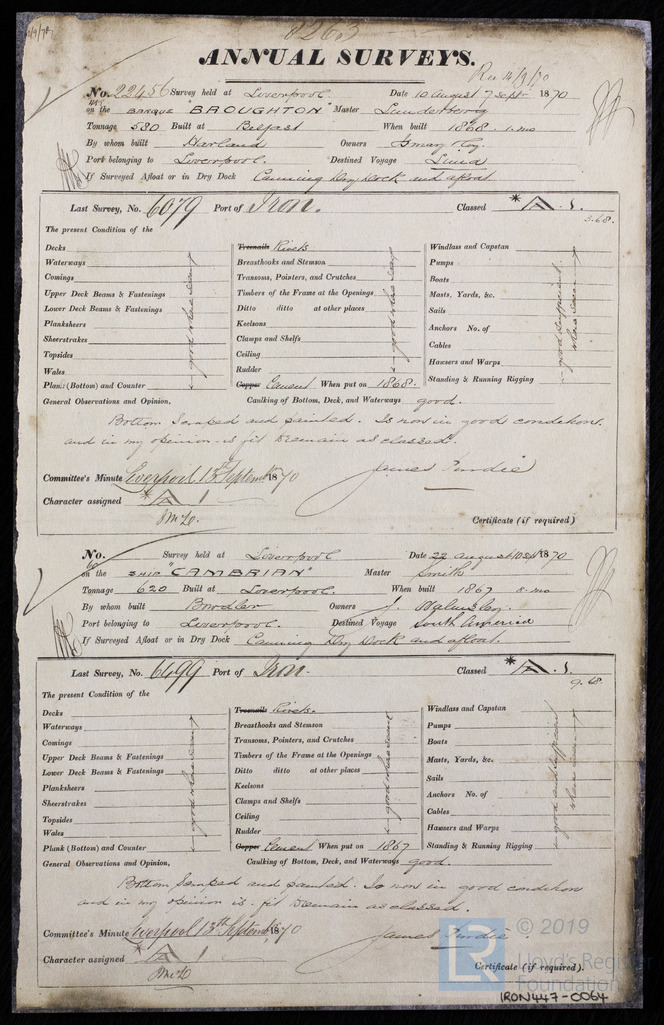 8263
ANNUAL SURVEYS.
Rec 14/9/70
No. 22456 Survey held at Liverpool Date 10 August 7 Sept 1870
on the BARQUE "BROUGHTON" Master
Tonnage 530 Built at Belfast When built 1868 1 mo
By whom built Harland Owners Ismay &Co.
Port belonging to Liverpool. Destined Voyage Lima
If Surveyed Afloat or in Dry Dock Canning Dry Dock and afloat
Last Survey, No. 6079 Port of Iron. Classed * A 1.
3.68.
The present Condition of the
Decks Treenails Rivets Windlass and Capstan
Waterways Breasthooks and Stemson Pumps
Comings Transoms, Pointers, and Crutches Boats
Upper Deck Beams & Fastenings Timbers of the Frame at the Openings Masts, Yards, &c.
Lower Deck Beams & Fastenings Ditto ditto at other places Sails
Planksheers Keelsons Anchors No. of
Sheerstrakes Clamps and Shelfs Cables
Topsides Ceiling Hawsers and Warps
Wales Rudder Standing & Running Rigging
Plank (Bottom) and Counter Copper Cement When put on 1868.
good where seen
good where seen
good & efficient where seen
General Observations and Opinion, Caulking of Bottom, Deck, and Waterways good.
Bottom Scraped and painted. Is now in good condition.
and in my opinion is fit to remain as classed.
Committee's Minute Liverpool 13th September 1870 James Purdie
Character assigned * A 1
Certificate (if required)
No. Survey held at Liverpool Date 22 August 10 Sept 1870
on the SHIP "CAMBRIAN" Master Smith
Tonnage 620 Built at Liverpool. When built 1867 8 mo
By whom built Owners
Port belonging to Liverpool. Destined Voyage South America
If Surveyed Afloat or in Dry Dock Canning Dry Dock and afloat.
Last Survey, No. 6499 Port of Iron. Classed * A 1.
9.68.
The present Condition of the
Decks Treenails Rivets. Windlass and Capstan
Waterways Breasthooks and Stemson Pumps
Comings Transoms, Pointers, and Crutches Boats
Upper Deck Beams & Fastenings Timbers of the Frame at the Openings Masts, Yards, &c.
Lower Deck Beams & Fastenings Ditto ditto at other places Sails
Planksheers Keelsons Anchors No. of
Sheerstrakes Clamps and Shelfs Cables
Topsides Ceiling Hawsers and Warps
Wales Rudder Standing & Running Rigging
Plank (Bottom) and Counter Copper Cement When put on 1867
good where seen
good where seen
good and efficient where seen
General Observations and Opinion, Caulking of Bottom, Deck, and Waterways good.
Bottom Scraped and painted. Is now in good condition
and in my opinion is fit to remain as classed.
Committee's Minute Liverpool 13th September 1870 James Purdie
Character assigned * A 1
Certificate (if required).
LR © 2019
Lloyd's Register
Foundation
IRON447-0064